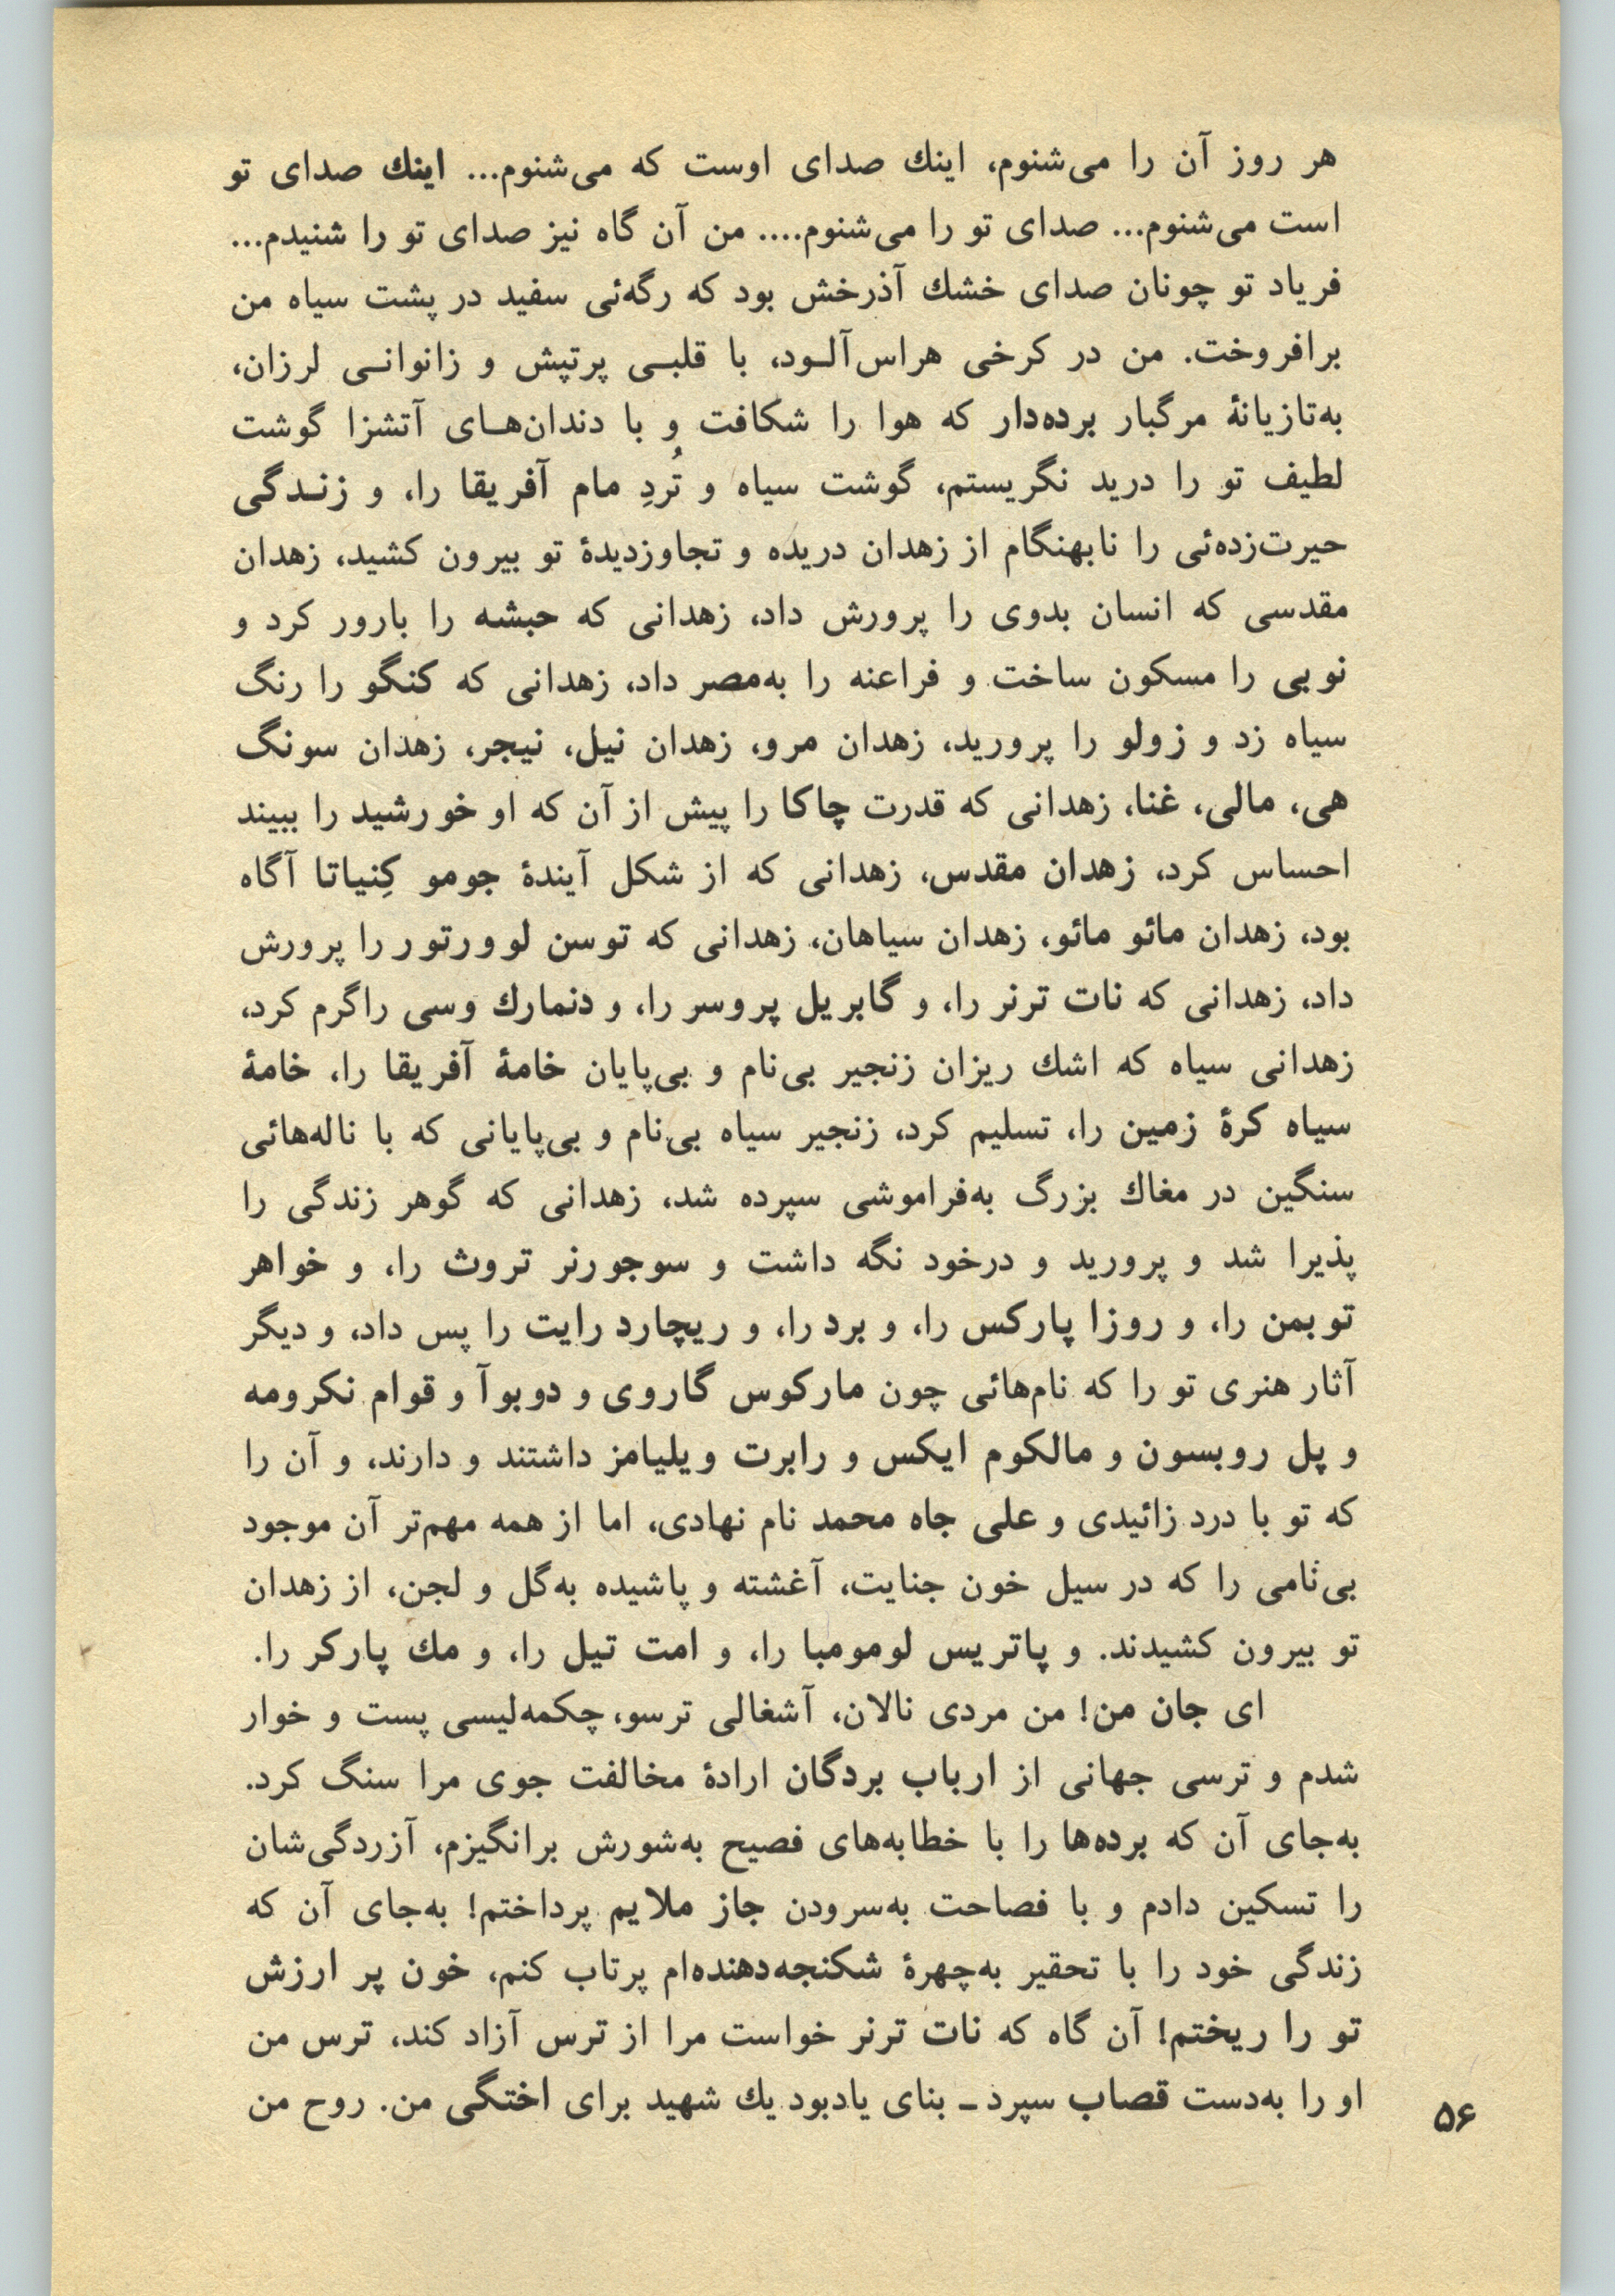 هر روز آن را می‌شنوم، اینك صدای اوست که می‌شنوم... اینك صدای تو
است می‌شنوم... صدای تو را می‌شنوم.... من آن گاه نیز صدای تو را شنیدم...
فریاد تو چونان صدای خشك آذرخش بود که رگه‌ئی سفید در پشت سیاه من
برافروخت. من در کرخی هراس‌آلـود، با قلبـی پرتپش و زانوانـی لرزان،
به‌تازیانهٔ مرگبار برده‌دار که هوا را شکافت و با دندان‌هـای آتشزا گوشت
لطیف تو را درید نگریستم، گوشت سیاه و تُردِ مام آفریقا را، و زنـدگی
حیرت‌زده‌ئی را نابهنگام از زهدان دریده و تجاوزدیدهٔ تو بیرون کشید، زهدان
مقدسی که انسان بدوی را پرورش داد، زهدانی که حبشه را بارور کرد و
نوبی را مسکون ساخت و فراعنه را به‌مصر داد، زهدانی که کنگو را رنگ
سیاه زد و زولو را پرورید، زهدان مرو، زهدان نیل، نیجر، زهدان سونگ
هی، مالی، غنا، زهدانی که قدرت چاکا را پیش از آن که او خورشید را ببیند
احساس کرد، زهدان مقدس، زهدانی که از شکل آیندهٔ جومو کِنیاتا آگاه
بود، زهدان مائو مائو، زهدان سیاهان، زهدانی که توسن لوورتور را پرورش
داد، زهدانی که نات ترنر را، و گابریل پروسر را، و دنمارك وسی راگرم کرد،
زهدانی سیاه که اشك ریزان زنجیر بی‌نام و بی‌پایان خامهٔ آفریقا را، خامهٔ
سیاه کرهٔ زمین را، تسلیم کرد، زنجیر سیاه بی‌نام و بی‌پایانی که با ناله‌هائی
سنگین در مغاك بزرگ به‌فراموشی سپرده شد، زهدانی که گوهر زندگی را
پذیرا شد و پرورید و درخود نگه داشت و سوجورنر تروث را، و خواهر
توبمن را، و روزا پارکس را، و برد را، و ریچارد رایت را پس داد، و دیگر
آثار هنری تو را که نام‌هائی چون مارکوس گاروی و دوبوآ و قوام نکرومه
و پل روبسون و مالکوم ایکس و رابرت ویلیامز داشتند و دارند، و آن را
که تو با درد زائیدی و علی جاه محمد نام نهادی، اما از همه مهم‌تر آن موجود
بی‌نامی را که در سیل خون جنایت، آغشته و پاشیده به‌گل و لجن، از زهدان
تو بیرون کشیدند. و پاتریس لومومبا را، و امت تیل را، و مك پارکر را.
ای جان من! من مردی نالان، آشغالی ترسو، چکمه‌لیسی پست و خوار
شدم و ترسی جهانی از ارباب بردگان ارادهٔ مخالفت جوی مرا سنگ کرد.
به‌جای آن که برده‌ها را با خطابه‌های فصیح به‌شورش برانگیزم، آزردگی‌شان
را تسکین دادم و با فصاحت به‌سرودن جاز ملایم پرداختم! به‌جای آن که
زندگی خود را با تحقیر به‌چهرهٔ شکنجه‌دهنده‌ام پرتاب کنم، خون پر ارزش
تو را ریختم! آن گاه که نات ترنر خواست مرا از ترس آزاد کند، ترس من
او را به‌دست قصاب سپرد ـ بنای یادبود یك شهید برای اختگی من. روح من
۵۶